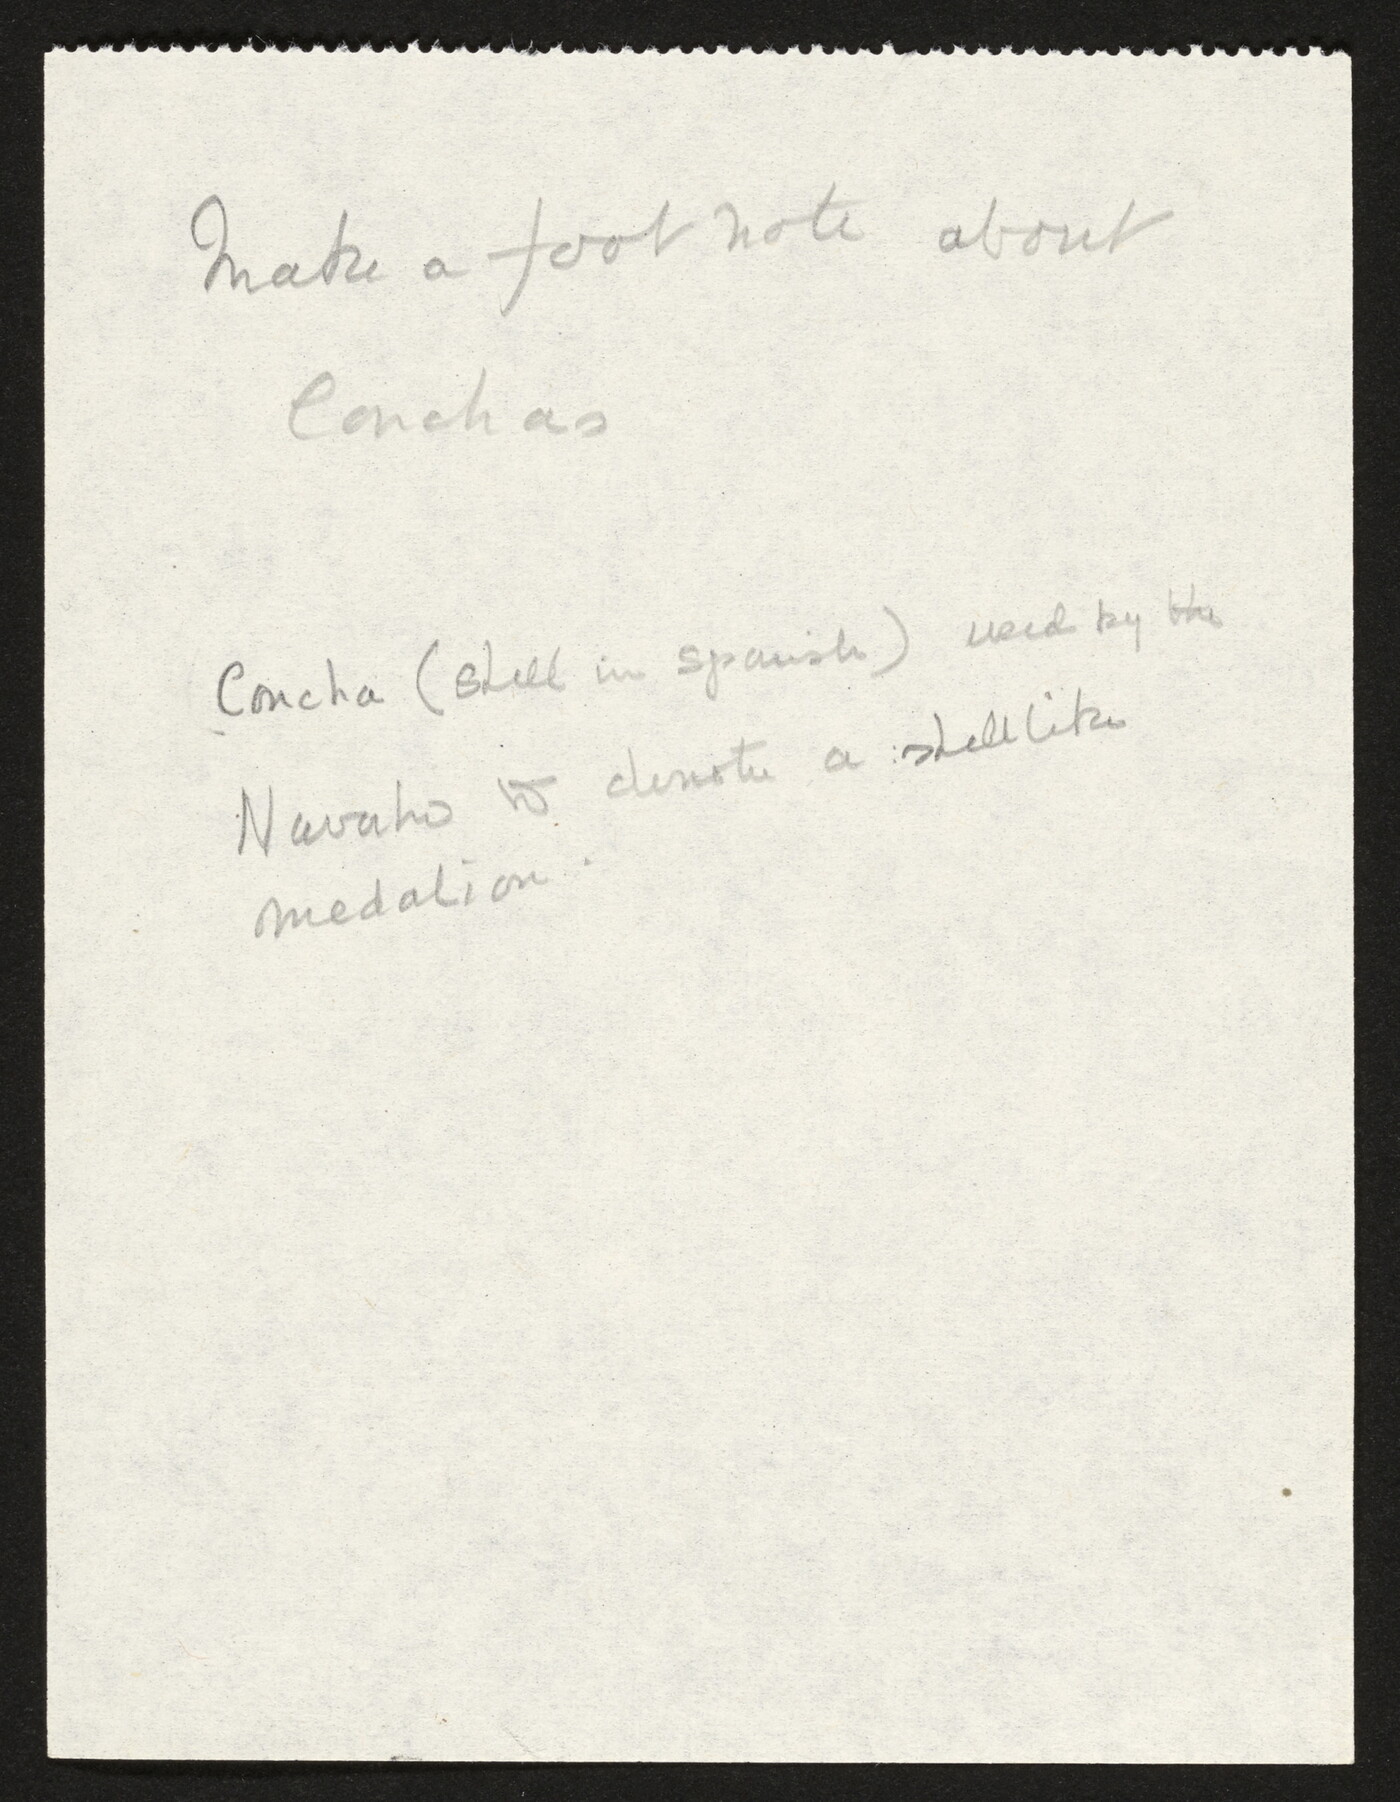 Make a foot note about
Conchas
Concha (shell in spanish) used by the
Navaho to denote a shell like
medalion.